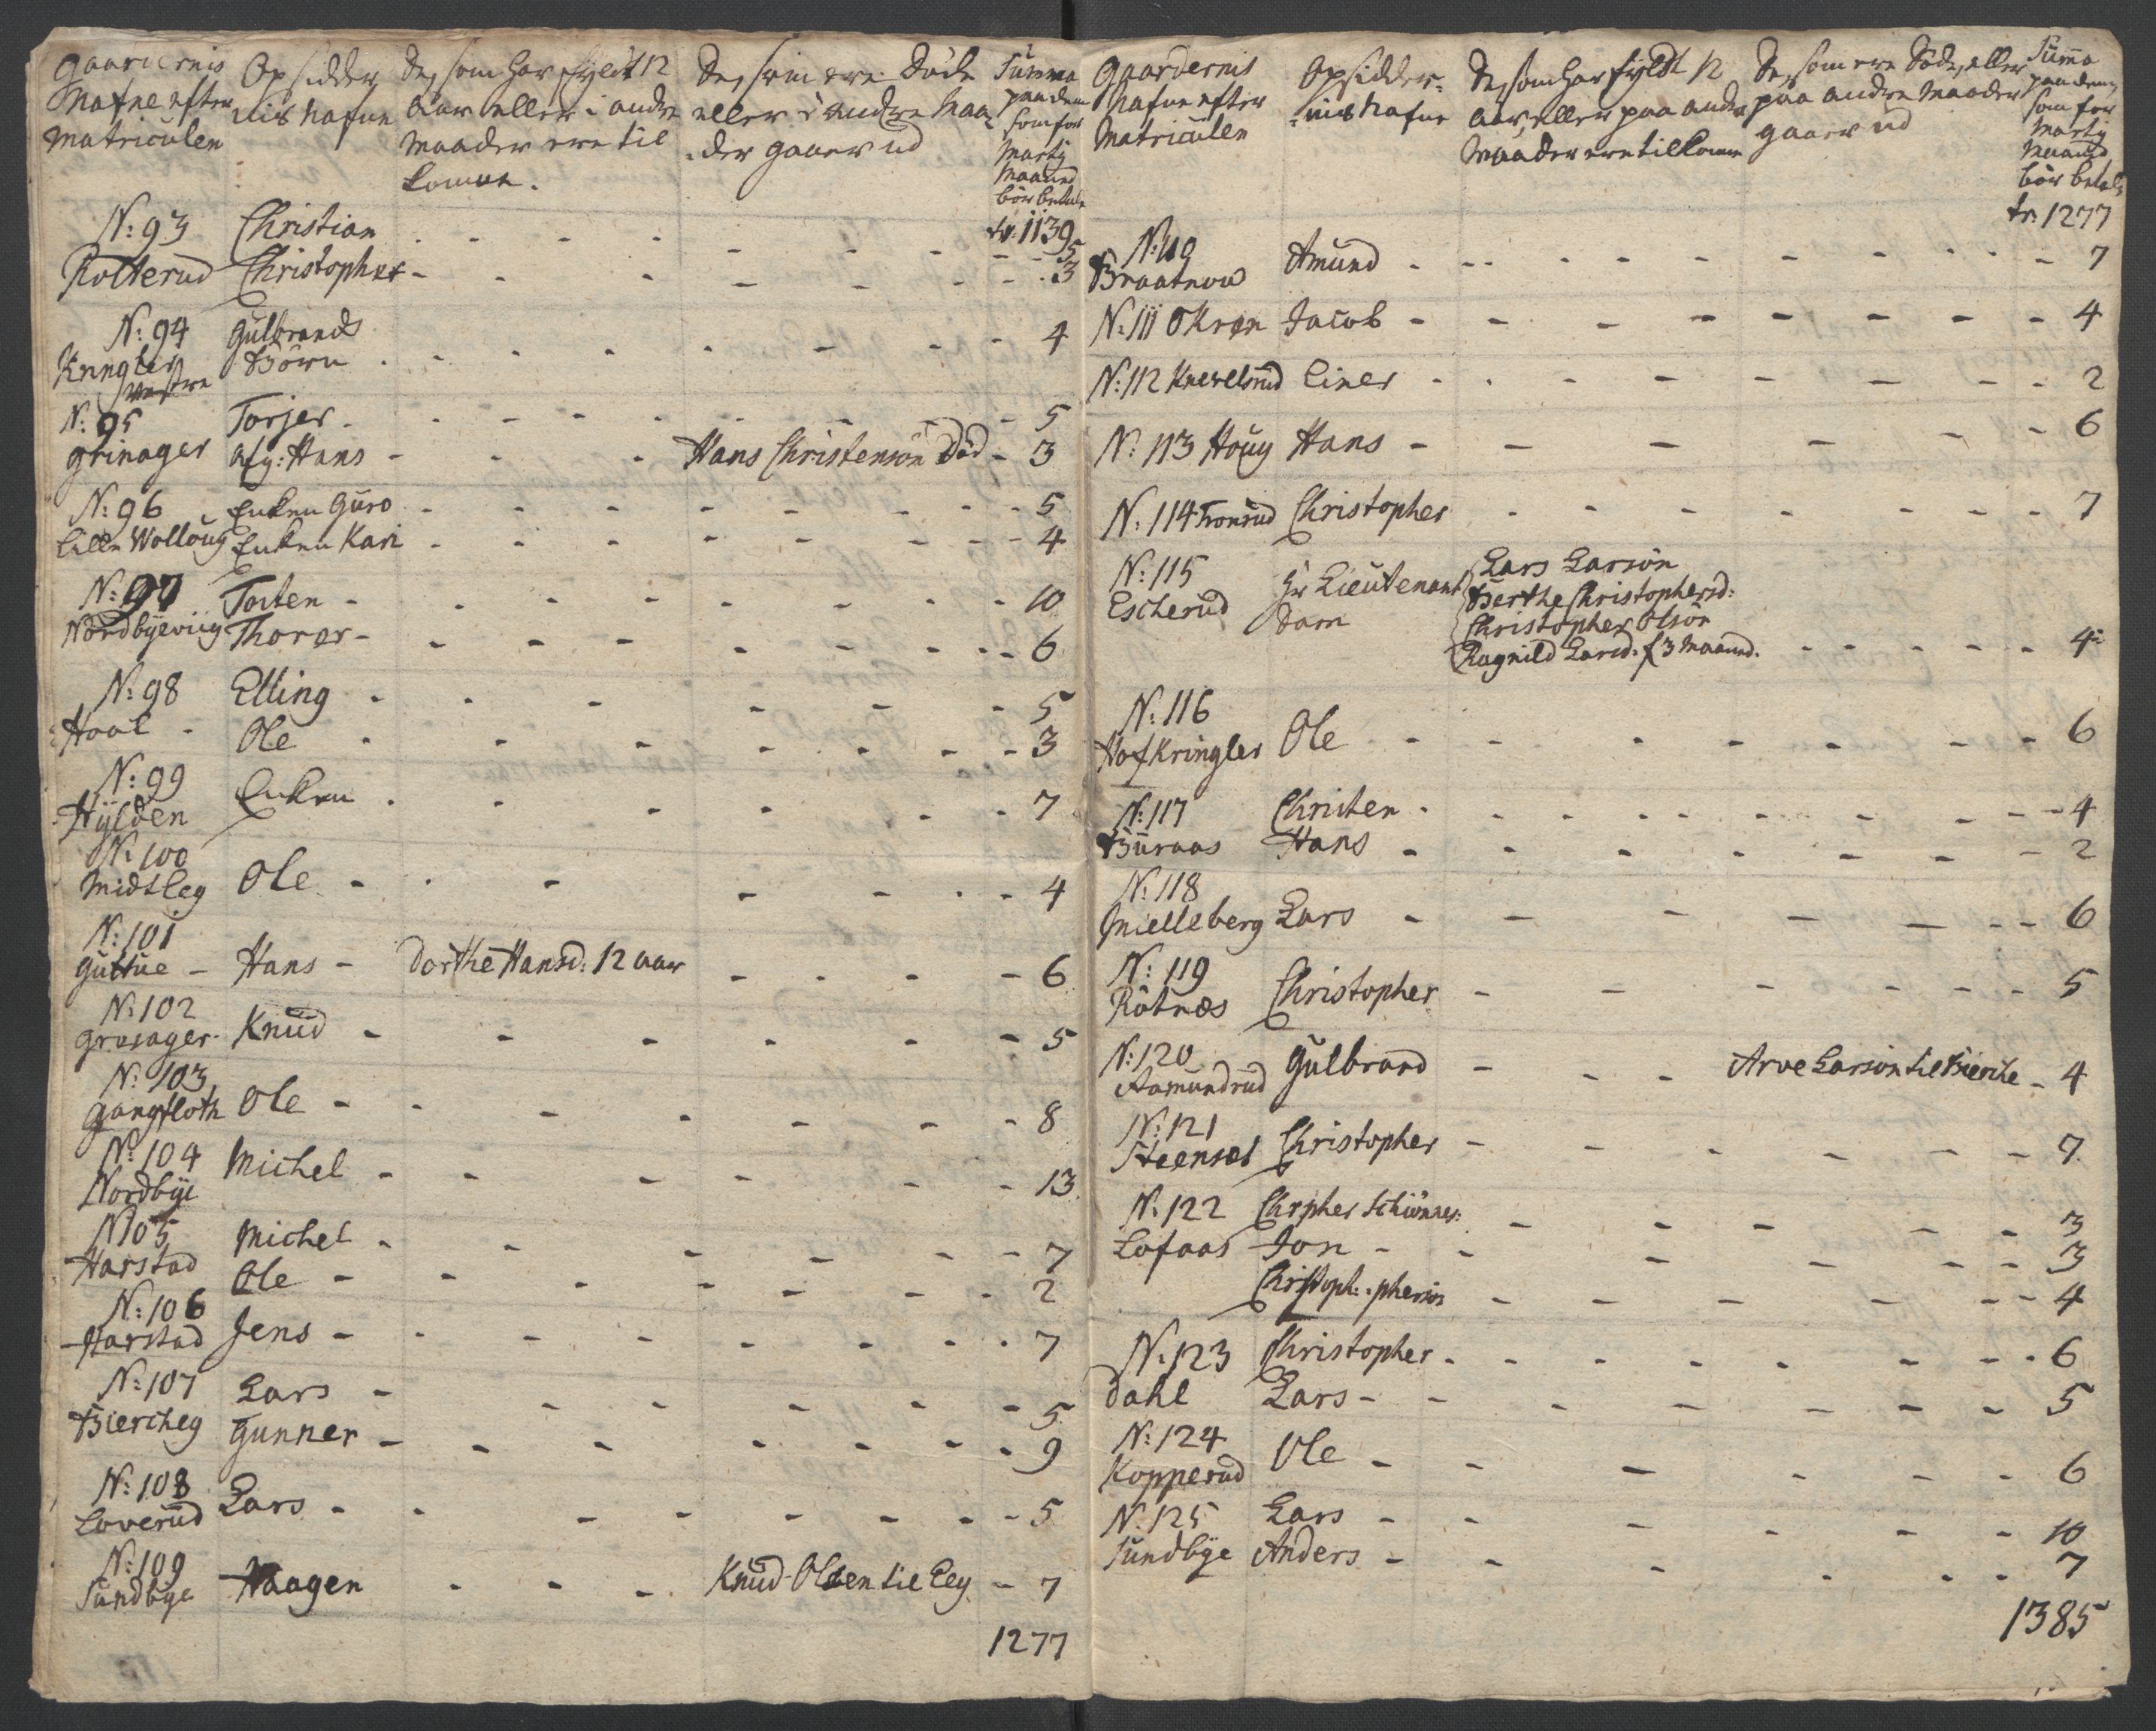 Gaardernis Nafne efter Matriculen
Opsidder nis Nafne
De som har fyldt 12 Aar eller i andre Maader ere til komne.
De som ere Døde eller i andre Maader gaaer ud
Summa paa dem som for Martij Maaned bør betale
tr: 1139
N: 93 Christian - 5
Rotterud Christopher - 3
N: 94 Gulbrands
Kringler Vestre Børn - 4
N: 95 Torjer - 5
Grinager Afg: Hans - Hans Christensøn Død - 3
N: 96 Enken Guro - 5
Lille Wolloug Enken Kari - 4
N: 97 Tosten - 10
Nordbyeviig Thorer - 6
N: 98 Elling - 5
Hoal - Ole - 3
N: 99
Hylden Enken - 7
N: 100
Midtleg Ole - 4
N: 101
Guttue - Hans - Dorthe Hansd: 12 aar - 6
N: 102
Grosager Knud - 5
N: 103
Gangfloth Ole - 8
N: 104
Nordbye Michel - 13
N105 Michel - 7
Harstad Ole - 2
N: 106
Harstad Jens - 7
N: 107 Lars - 5
Biercheg Gunner - 9
N: 108
Loverud Lars - 5
N: 109
Sundbye Haagen - Knud Olsen til Eeg - 7
1277
Gaardernis Nafne efter Matriculen
Opsidder: nis Nafne
De som har fyldt 12 Aar, eller paa andre Maader ere tilkomne
De som ere Døde, eller paa andre Maader gaaer ud
Summa paa dem som for Martij Maaned bør betale
tr: 1277
N: 110
Braatnou Amund - 7
N: 111 Okron Jacob - 4
N: 112 Knevelsrud Einer - 2
N: 113 Houg Hans - 6
N: 114 Tronrud Christopher - 7
N: 115
Escherud Hr Lieutenant Dorn
Lars Larsøn
Berthe Christophersd:
Christopher Olsøn
Ragnild Larsd: f 3 Maaned. - 4
N: 116
Hofkringler Ole - 6
N: 117 Christen - 4
Buraas Hans - 2
N: 118
Mielleberg Lars - 6
N: 119
Rotnæs Christopher - 5
N: 120
Aamundrud Gulbrand - Arve Larsøn til Bierche - 4
N: 121
Steensæt Christopher - 7
N: 122 Chrpher Schiønnes: - 3
Lofaas Jon - 3
Christoph: phersøn - 4
N: 123 Christopher - 6
Dahl Lars - 5
N: 124
Kopperud Ole - 6
N. 125 Lars - 10
Sundbye Anders - 7
1385